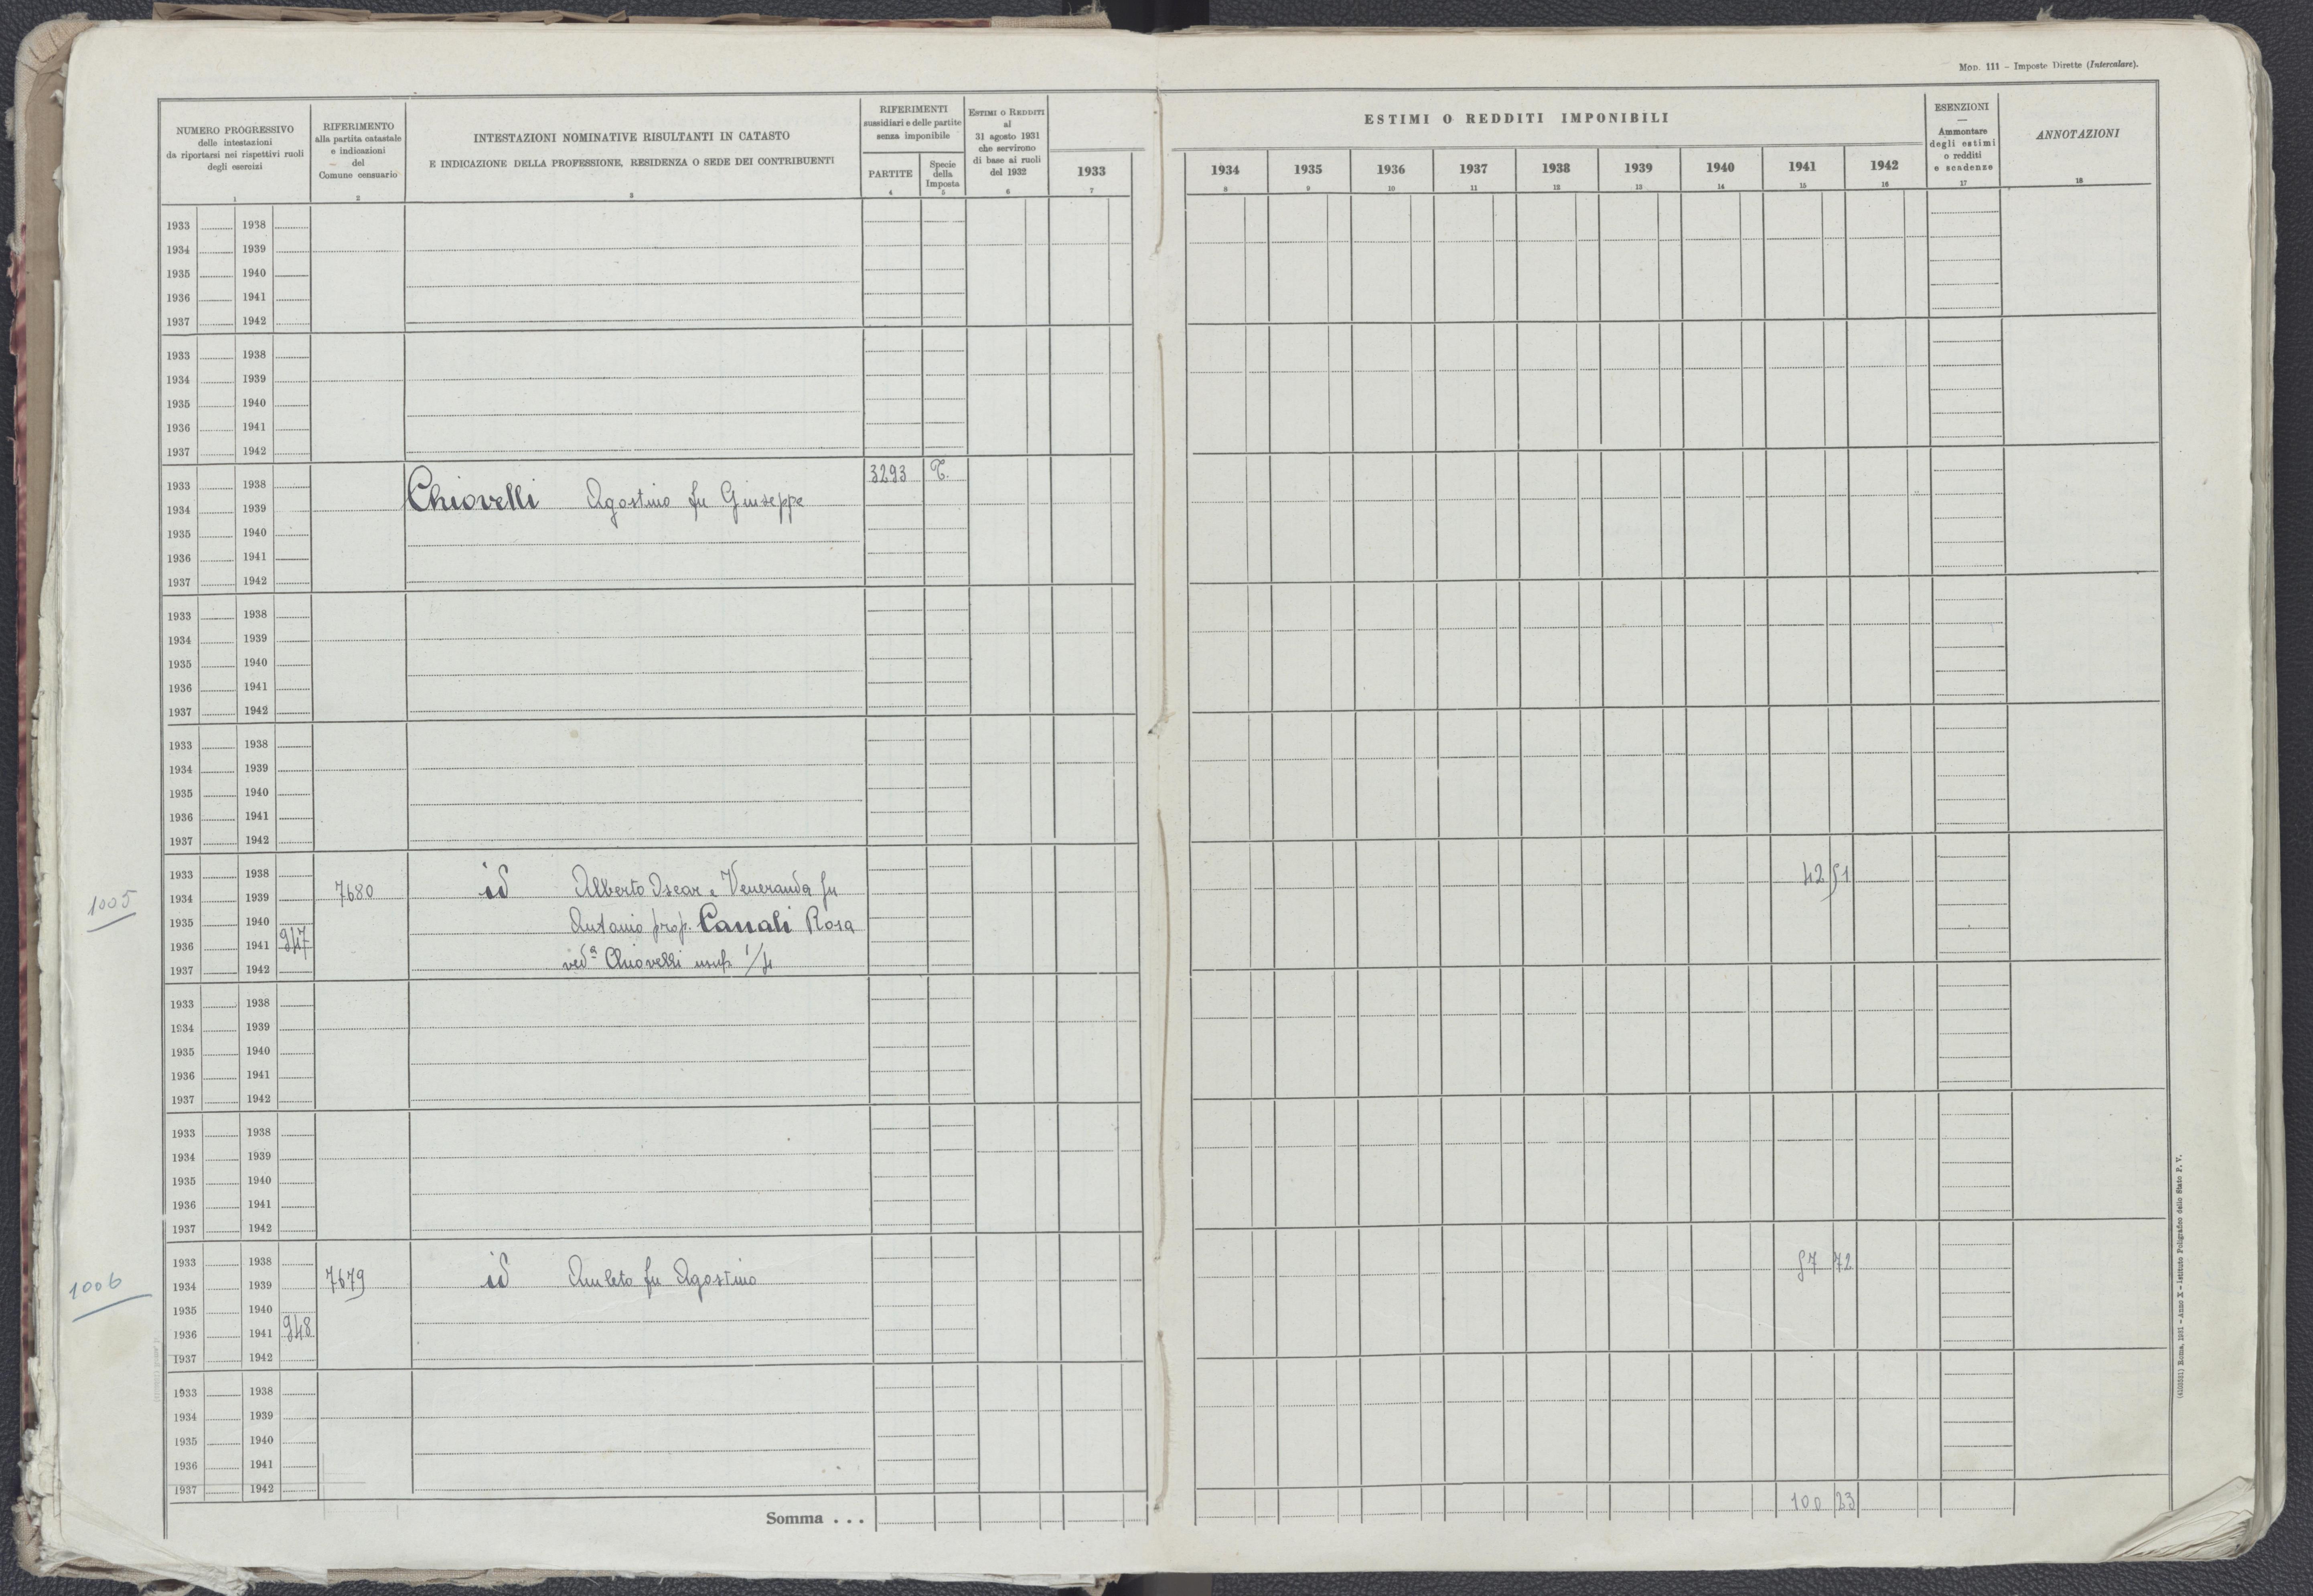 Mod. 111 - Imposte Dirette (Intercalare).
NUMERO PROGRESSIVO
delle intestazioni
da riportarsi nei rispettivi ruoli
degli esercizi
1
RIFERIMENTO
alla partita catastale
e indicazioni
del
Comune censuario
2
INTESTAZIONI NOMINATIVE RISULTANTI IN CATASTO
E INDICAZIONE DELLA PROFESSIONE, RESIDENZA O SEDE DEI CONTRIBUENTI
3
RIFERIMENTI
sussidiari e delle partite
senza imponibile
PARTITE
4
Specie
della
Imposta
5
ESTIMI O REDDITI
al
31 agosto 1931
che servirono
di base ai ruoli
del 1932
6
1933
7
ESTIMI O REDDITI IMPONIBILI
1934 1935 1936 1937 1938 1939 1940 1941 1942
8 9 10 11 12 13 14 15 16
ESENZIONI
—
Ammontare
degli estimi
o redditi
e scadenze
17
ANNOTAZIONI
18
1933 1938
1934 1939
1935 1940
1936 1941
1937 1942
1933 1938
1934 1939
1935 1940
1936 1941
1937 1942
1933 1938 3293 T.
1934 1939 Chiovelli Agostino fu Giuseppe
1935 1940
1936 1941
1937 1942
1933 1938
1934 1939
1935 1940
1936 1941
1937 1942
1933 1938
1934 1939
1935 1940
1936 1941
1937 1942
1933 1938 42 51
1005 1934 1939 7680 id Alberto Oscar e Veneranda fu
1935 1940 Antonio prop. Canali Rosa
1936 1941 947
1937 1942 ved.a Chiovelli usuf. 1/4
1933 1938
1934 1939
1935 1940
1936 1941
1937 1942
1933 1938
1934 1939
1935 1940
1936 1941
1937 1942
1933 1938 57 72
1006 1934 1939 7679 id Amleto fu Agostino
1935 1940
1936 1941 948
1937 1942
1933 1938
1934 1939
1935 1940
1936 1941
1937 1942
Somma . . . 100 23
(4103551) Roma, 1931 - Anno X - Istituto Poligrafico dello Stato P. V.